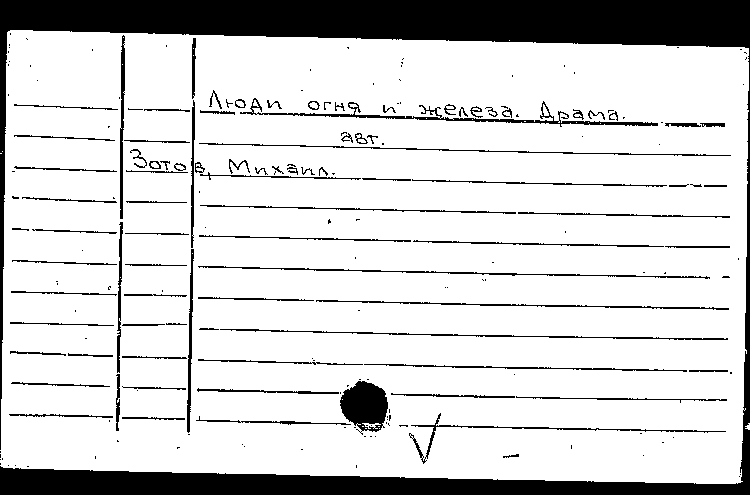 Люди огня и железа. Драма.
авт.
Зотов, Михаил.